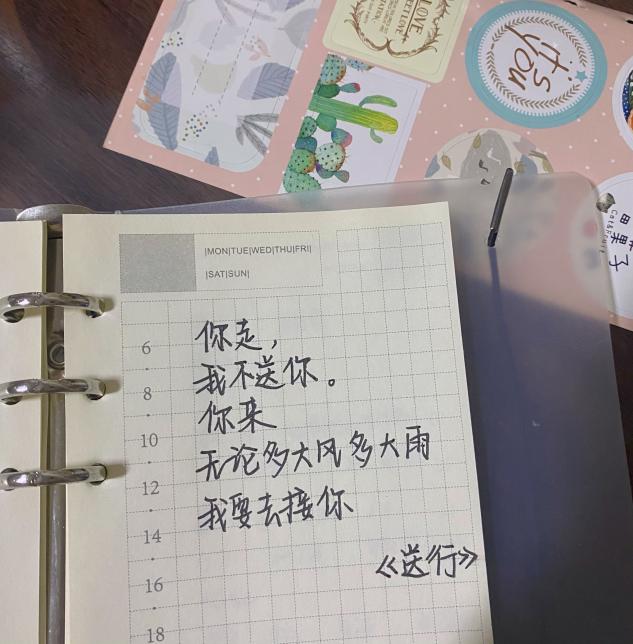 LOVE
it's
you
|MON|TUE|WED|THU|FRI|
|SAT|SUN|
6
8
10
12
14
16
18
你走，
我不送你。
你来
无论多大风多大雨
我要去接你
《送行》